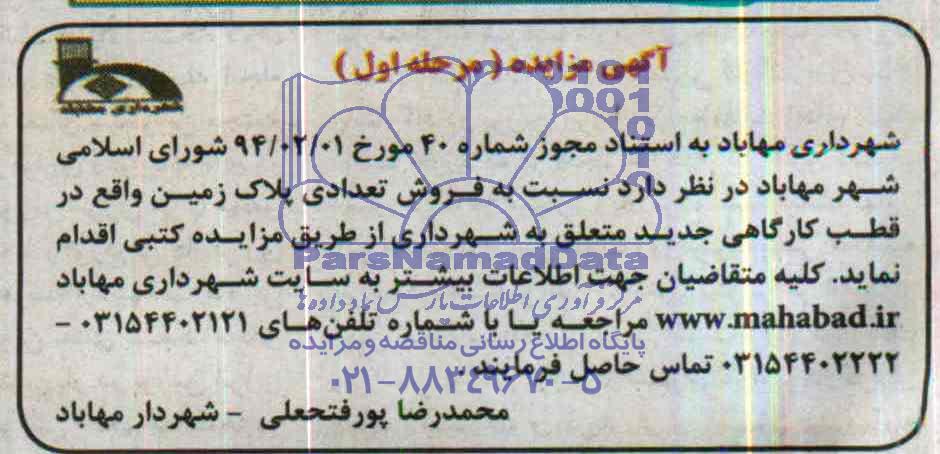 آگهی مزایده (مرحله اول)
شهرداری مهاباد
شهرداری مهاباد به استناد مجوز شماره ۴۰ مورخ ۹۴/۰۲/۰۱ شورای اسلامی
شهر مهاباد در نظر دارد نسبت به فروش تعدادی پلاک زمین واقع در
قطب کارگاهی جدید متعلق به شهرداری از طریق مزایده کتبی اقدام
نماید. کلیه متقاضیان جهت اطلاعات بیشتر به سایت شهرداری مهاباد
www.mahabad.ir مراجعه یا با شماره تلفن‌های ۰۳۱۵۴۴۰۲۱۲۱ -
۰۳۱۵۴۴۰۲۲۲۲ تماس حاصل فرمایند.
محمدرضا پورفتحعلی - شهردار مهاباد
ParsNamadData
مرکز فرآوری اطلاعات پارس نماد داده‌ها
پایگاه اطلاع رسانی مناقصه و مزایده
۰۲۱-۸۸۳۴۹۶۷۰-۵